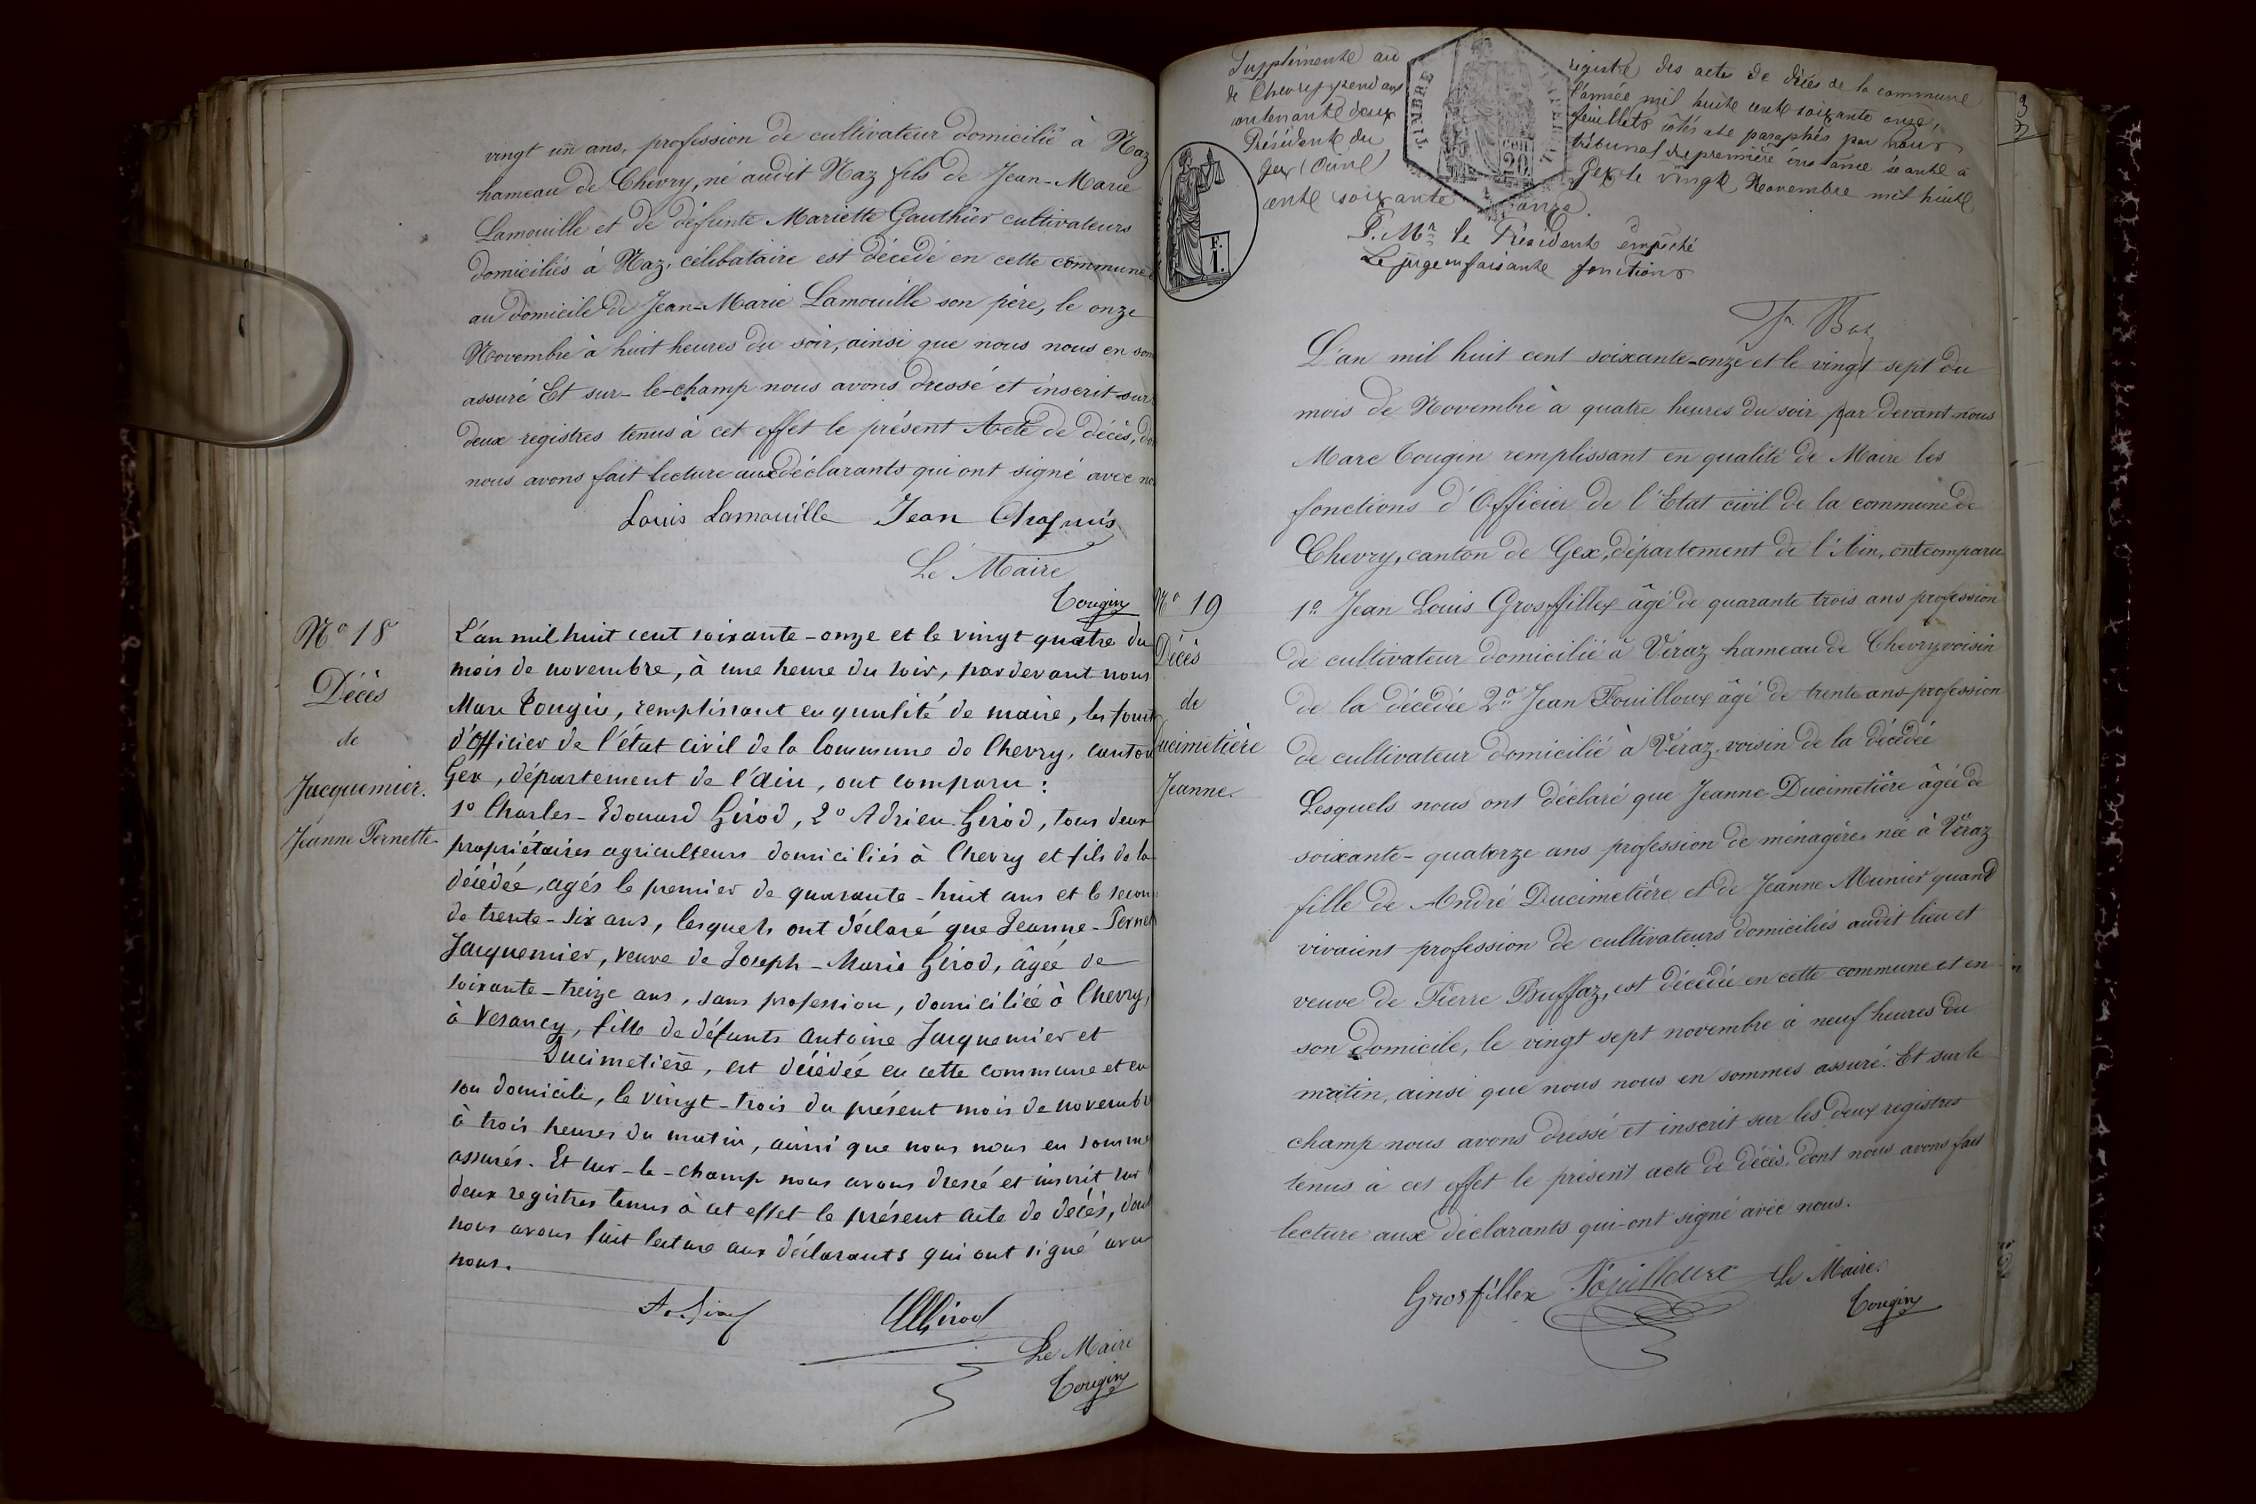 vingt un ans, profession de cultivateur domicilié à Naz
hameau de Chevry, né audit Naz fils de Jean-Marie
Lamouille et de défunte Mariette Gauthier cultivateurs
domiciliés à Naz, célibataire est décédé en cette commune
au domicile de Jean-Marie Lamouille son père, le onze
Novembre à huit heures du soir, ainsi que nous nous en som
assuré Et sur-le-champ nous avons dressé et inscrit sur
deux registres tenus à cet effet le présent Acte de décès, do
nous avons fait lecture aux déclarants qui ont signé avec no
Louis Lamouille Jean
Le Maire
Tougin
No 18
Décès
de
Jacquemier.
Jeanne Pernette
L'an mil huit cent soixante-onze et le vingt quatre du
mois de novembre, à une heure du soir, pardevant nous
Marc Tougin, remplissant en qualité de maire, les fonct
d'Officier de l'état civil de la Commune de Chevry, canton
Gex, département de l'Ain, ont comparu :
1o Charles-Edouard Girod, 2o Adrien Girod, tous deux
propriétaires agriculteurs domiciliés à Chevry et fils de la
décédée, agés le premier de quarante-huit ans et le secon
de trente-six ans, lesquels ont déclaré que Jeanne-Pernet
Jacquemier, veuve de Joseph-Marie Girod, âgée de
soixante-treize ans, sans profession, domiciliée à Chevry,
à Vesancy, fille de défunts Antoine Jacquemier et
Ducimetière, est décédée en cette commune et en
son domicile, le vingt-trois du présent mois de novembr
à trois heures du matin, ainsi que nous nous en somme
assurés. Et sur-le-champ nous avons dressé et inscrit sur
deux registres tenus à cet effet le présent acte de décès, dont
nous avons fait lecture aux déclarants qui ont signé avec
nous.
Girod
Le Maire
Tougin
Supplémente au registre des actes de décès de la commune
de Chevry pendant l'année mil huit cent soixante onze,
contenante deux feuillets côtés et paraphés par nous
Président du tribunal de première instance séante à
Gex (Ain) Gex le vingt Novembre mil huit
cent soixante onze.
TIMBRE
20
F.
I.
3
P. Mr le Président empêché
Le juge en faisante fonctions
L'an mil huit cent soixante-onze et le vingt sept du
mois de Novembre à quatre heures du soir par devant nous
Marc Tougin remplissant en qualité de Maire les
fonctions d'Officier de l'Etat civil de la commune de
Chevry, canton de Gex, département de l'Ain, ont comparu
No 19
Décès
de
Ducimetière
Jeanne.
1o Jean Louis Grosfillex âgé de quarante trois ans profession
de cultivateur domicilié à Véraz hameau de Chevry voisin
de la décédée 2o Jean Fouilloux âgé de trente ans profession
de cultivateur domicilié à Véraz, voisin de la décédée
Lesquels nous ont déclaré que Jeanne Ducimetière âgée de
soixante-quatorze ans profession de ménagère née à Véraz
fille de André Ducimetière et de Jeanne Munier quand
vivaient profession de cultivateurs domiciliés audit lieu et
veuve de Pierre Buffaz, est décédée en cette commune et en
son domicile, le vingt sept novembre à neuf heures du
matin, ainsi que nous nous en sommes assuré. Et sur le
champ nous avons dressé et inscrit sur les deux registres
tenus à cet effet le présent acte de décès dont nous avons fait
lecture aux déclarants qui ont signé avec nous.
Grosfillex Fouilloux Le Maire
Tougin